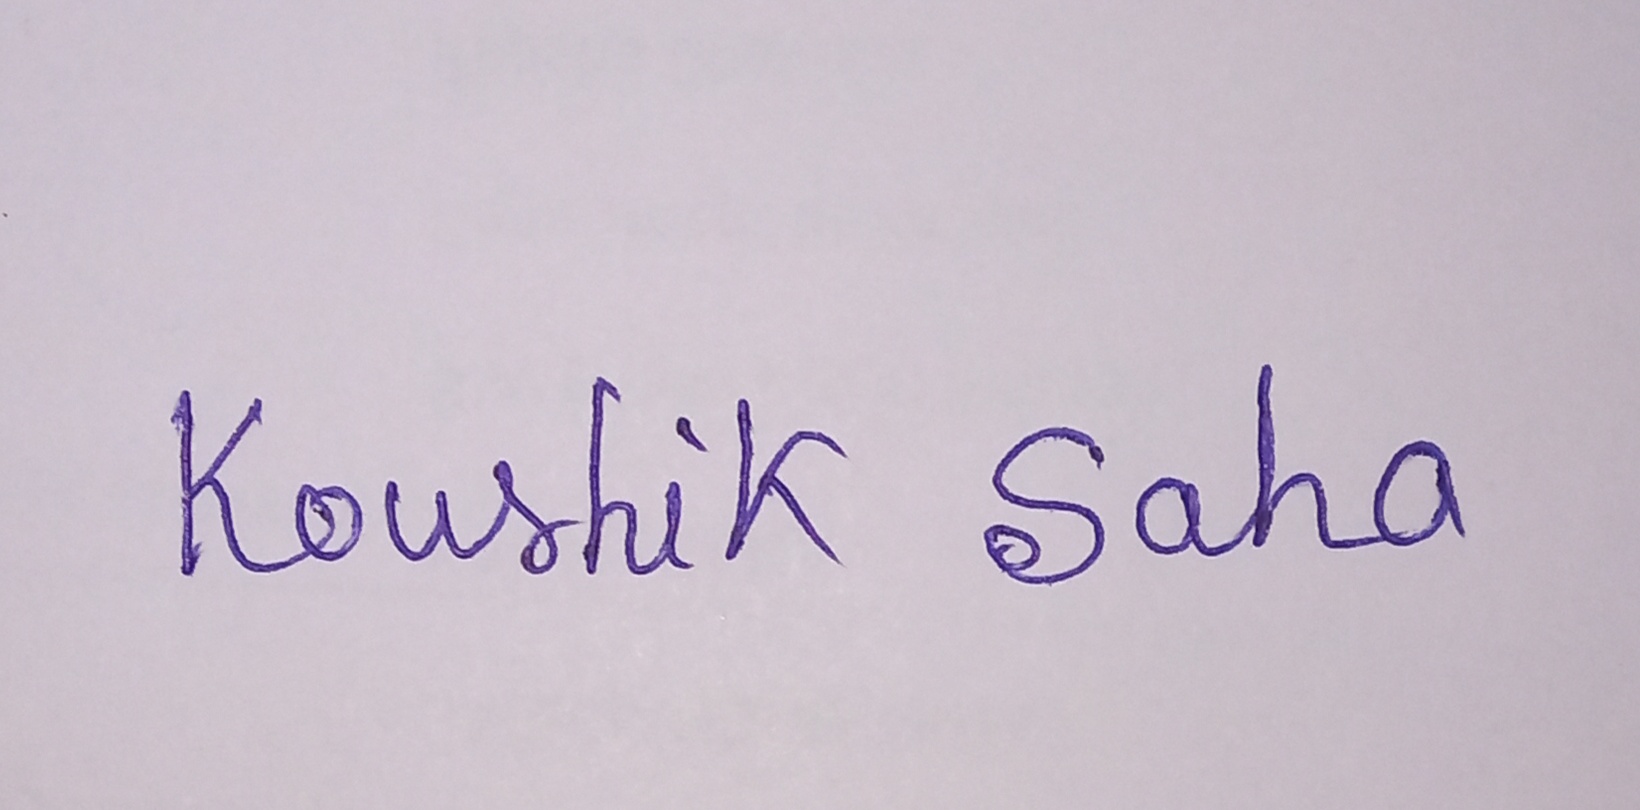 Koushik Saha